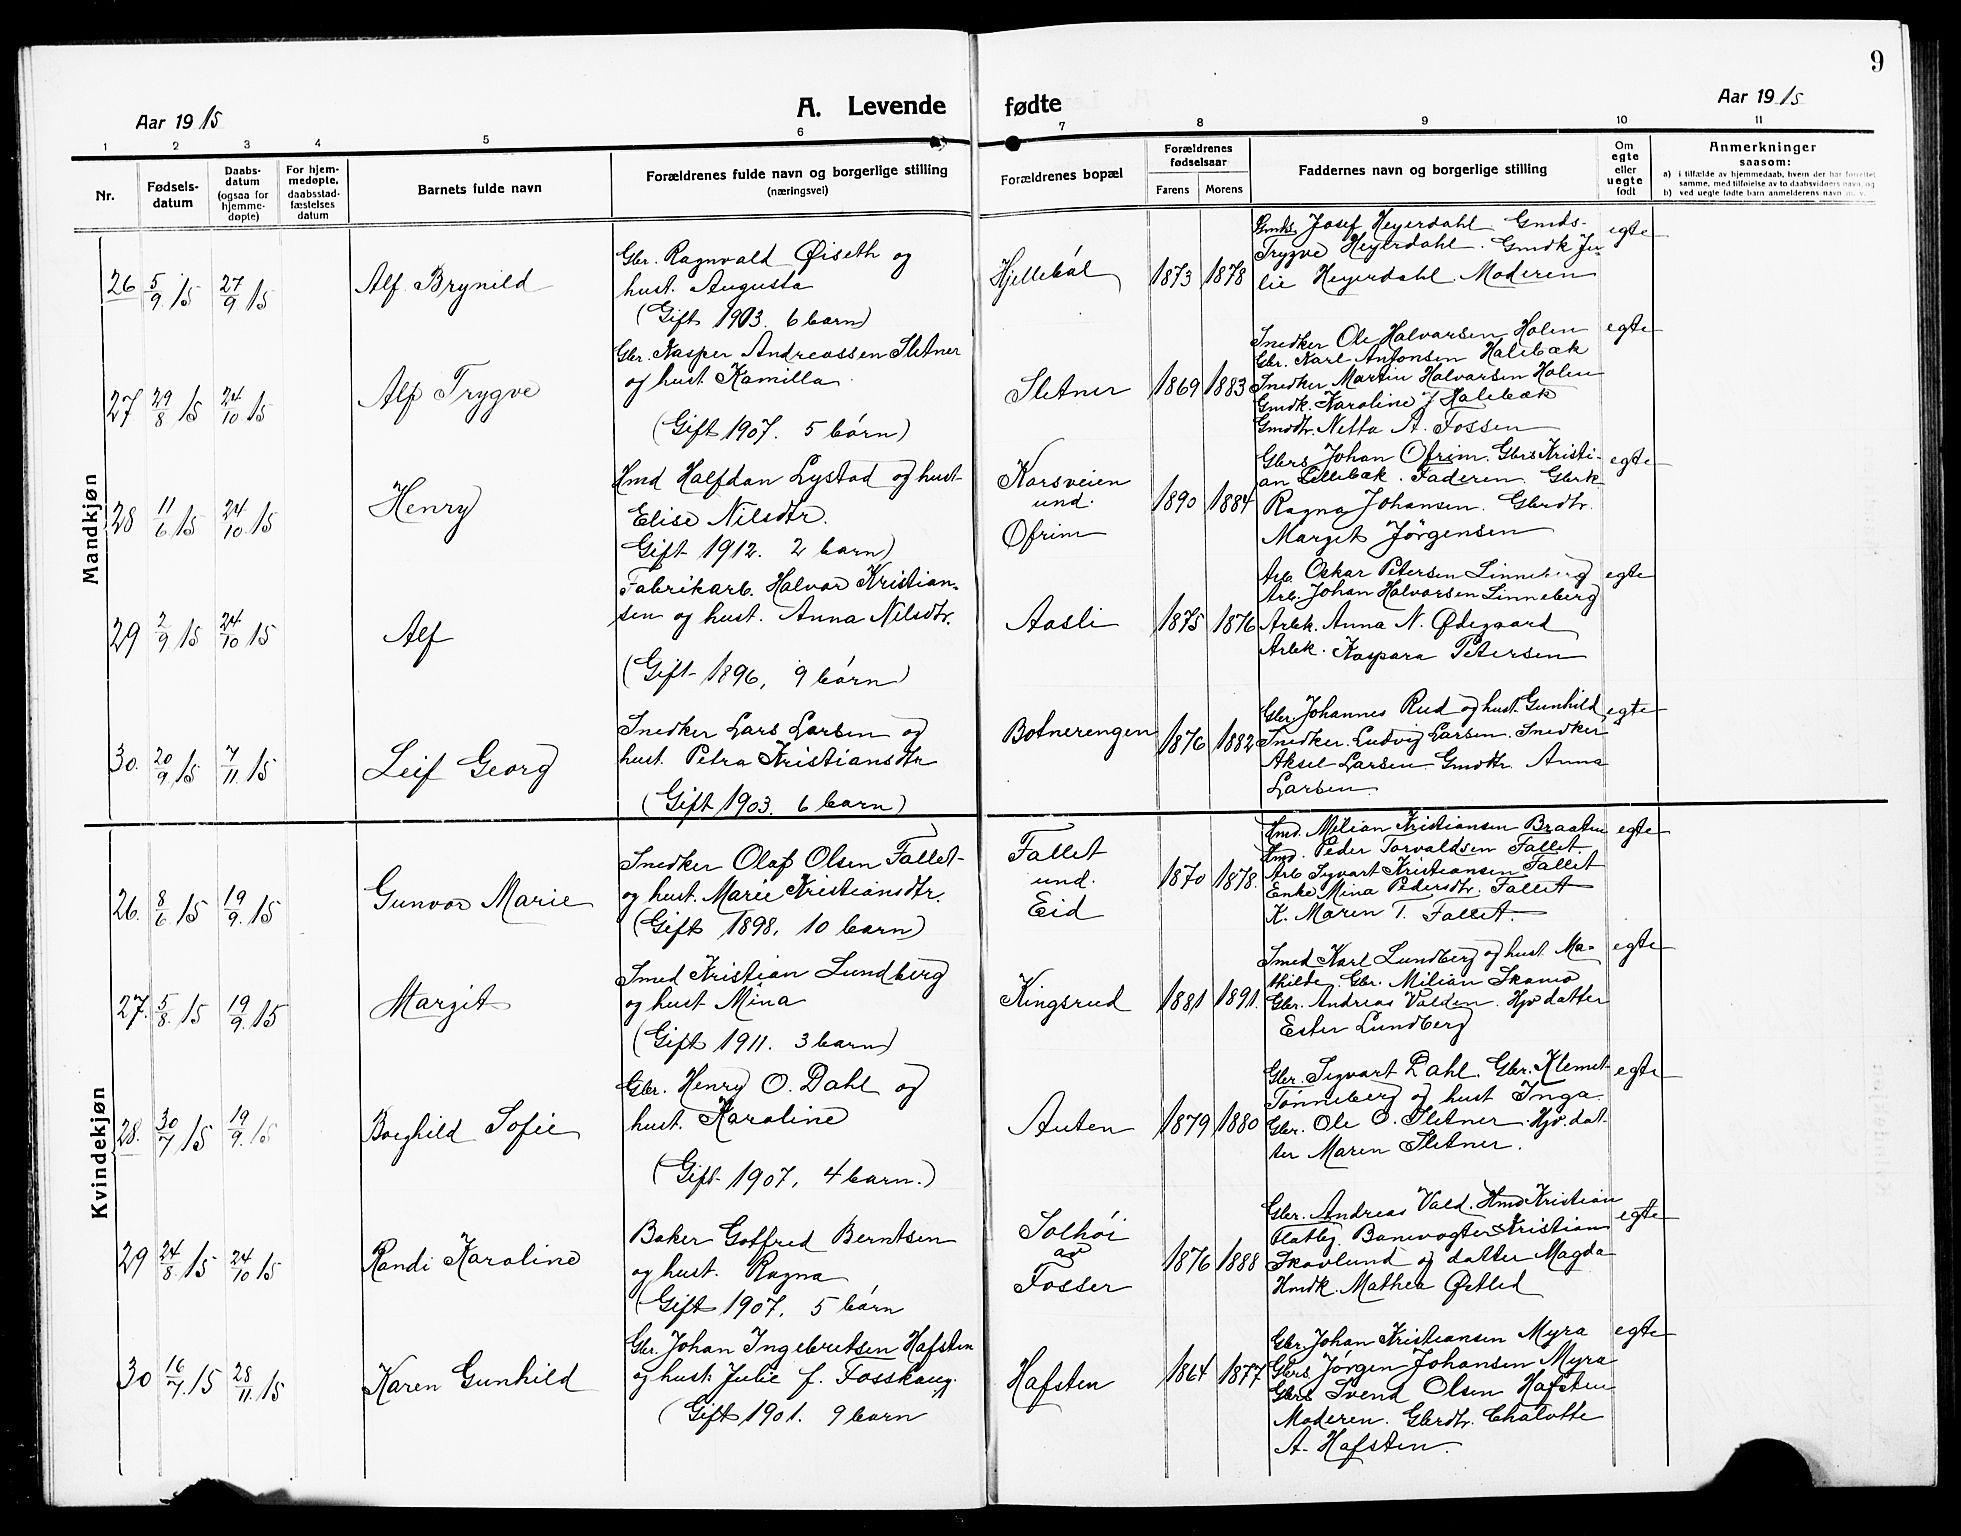 9
Aar 1915
A. Levende fødte
Aar 1915
1 2 3 4 5 6 7 8 9 10 11
Nr.
Fødsels-
datum
Daabs-
datum
(ogsaa for
hjemme-
døpte)
For hjem-
medøpte,
daabsstad-
fæstelses
datum
Barnets fulde navn
Forældrenes fulde navn og borgerlige stilling
(næringsvei)
Forældrenes bopæl
Forældrenes
fødselsaar
Farens Morens
Faddernes navn og borgerlige stilling
Om
egte
eller
uegte
født
Anmerkninger
saasom:
a) i tilfælde av hjemmedaab, hvem der har forrettet
samme, med tilføielse av to daabsvidners navn, og
b) ved uegte fødte barn anmelderens navn m. v.
Mandkjøn
26 5/9 15 27/9 15 Alf Brynild
Gbr. Ragnvald Øiseth og
hust. Augusta
(Gift 1903. 6 barn)
Hjellebøl 1873 1878
Gmds. Josef Heyerdahl Gmds-
Trygve Heyerdahl. Gmdk Ju-
lie Heyerdahl. Moderen
egte
27 29/8 15 24/10 15 Alf Trygve
Gbr. Kasper Andreassen Sletner
og hust. Kamilla
(Gift 1907. 5 børn)
Sletner 1869 1883
Snedker Ole Halvarsen Holen
Gbr. Karl Antonsen Halebæk
Snedker Martin Halvarsen Holen
Gmdk. Karoline J Halebæk
Gmdtr. Netta A. Fossen
egte
28 11/6 15 24/10 15 Henry
Hmd Halfdan Lystad og hust-
Elise Nilsdtr.
Gift 1912. 2 barn)
Korsveien
und.
Ofrim
1890 1884
Gbrs Johan Ofrim. Gbrs Kristi-
an Lillebæk. Faderen. Gbrk
Ragna Johansen. Gbrdtr.
Margit Jørgensen
egte
29 2/9 15 24/10 15 Alf
Fabrikarb. Halvor Kristian-
sen og hust. Anna Nilsdtr.
(Gift 1896, 9 børn)
Aasli 1875 1876
Arb. Oskar Petersen Linneberg
Arb. Johan Halvorsen Linneberg
Arbk. Anna N. Ødegaard
Arbk. Kaspara Petersen
egte
30. 20/9 15 7/11 15 Leif Georg
Snedker Lars Larsen og
hust. Petra Kristiansdtr
(Gift 1903. 6 barn)
Botnerengen 1876 1882
Gbr Johannes Rud og hust. Gunhild
Snedker. Ludvig Larsen. Snedker
Aksel Larsen. Gmdtr. Anna
Larsen.
egte
Kvindekjøn
26. 8/6 15 19/9 15 Gunvor Marie
Snedker Olaf Olsen Fallet
og hust. Marie Kristiansdtr.
(Gift 1898, 10 barn)
Fallet
und.
Eid
1870 1878.
Hmd. Milian Kristiansen Braaten
Hmd. Peder Torvaldsen Fallet.
Arb Sigvart Kristiansen Fallet
Enke Mina Pedersdtr. Fallet
K. Maren T. Fallet.
egte
27. 5/8 15 19/9 15 Margit
Smed Kristian Lundberg
og hust Mina
(Gift 1911. 3 barn)
Kingsrud 1881 1891.
Smed Karl Lundberg og hust Ma-
thilde. Gbr. Milian Skamo
Gbr. Andreas Volden. Hjv datter
Ester Lundberg
egte
28. 30/7 15 19/9 15 Borghild Sofie
Gbr. Henry O. Dahl og
hust. Karoline
(Gift 1907, 4 barn.)
Auten 1879 1880
Gbr. Sigvart Dahl. Gbr. Klemet
Tønneberg og hust Inga
Gbr. Ole O. Sletner. Hjv. dat-
ter Maren Sletner.
egte
29 24/8 15 24/10 15 Randi Karoline
Baker Gotfred Berntsen
og hust. Ragna
(Gift 1907, 5 børn
Solhøi
av
Fosser
1876 1888
Gbr. Andreas Vald. Hmd Kristian
Flatby. Banevogter Kristian
Skovlund og datter Magda
Hmdk. Mathea Østlid
egte
30 16/7 15 28/11 15 Karen Gunhild
Gbr. Johan Ingebretsen Hafsten
og hust. Julie f. Fosshaug.
(Gift 1901. 9 barn
Hafsten 1864 1877
Gbr Johan Kristiansen Myra
Gbrs Jørgen Johansen Myra
Gbrs Svend Olsen Hafsten
Moderen. Gbrdtr. Chalotte
A. Hafsten.
egte